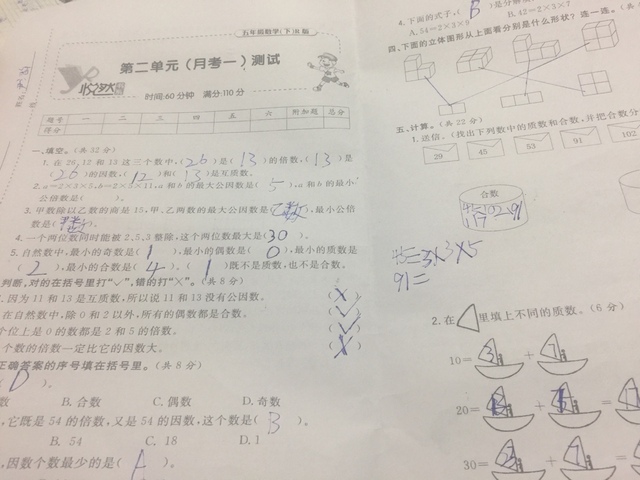 五年级数学(下)R版
第二单元（月考一）测试
时间:60分钟 满分:110分
题号 一 二 三 四 五 六 附加题 总分
得分
一、填空。(共32分)
1.在26,12和13这三个数中,(26)是(13)的倍数,(13)是
(26)的因数,(12)和(13)是互质数。
2.a=2×3×5,b=2×5×11,a和b的最大公因数是(5),a和b的最小
公倍数是( )。
3.甲数除以乙数的商是15,甲、乙两数的最大公因数是(乙数),最小公倍
数是(甲数)。
4.一个两位数同时能被2、5、3整除,这个两位数最大是(30)。
5.自然数中,最小的奇数是(1),最小的偶数是(0),最小的质数是
(2),最小的合数是(4),(1)既不是质数,也不是合数。
判断,对的在括号里打"√",错的打"×"。(共8分)
1.因为11和13是互质数,所以说11和13没有公因数。 (×)
在自然数中,除0和2以外,所有的偶数都是合数。 (√)
个位上是0的数都是2和5的倍数。 (√)
个数的倍数一定比它的因数大。 (×)
正确答案的序号填在括号里。(共8分)
(D)。
数 B.合数 C.偶数 D.奇数
,它既是54的倍数,又是54的因数,这个数是(B)。
B. 54 C. 18 D.1
,因数个数最少的是(A)。
4.下面的式子,(B)是分解
A.54=2×3×9 B.42=2×3×7
四、下面的立体图形从上面看分别是什么形状？连一连。(共
五、计算。(共22分)
1.送信。(找出下列数中的质数和合数,并把合数分
29 45 53 91 102
合数
45=3×3×5
91=
2.在 里填上不同的质数。(6分)
10= 3 + 7
20= + =
30= +